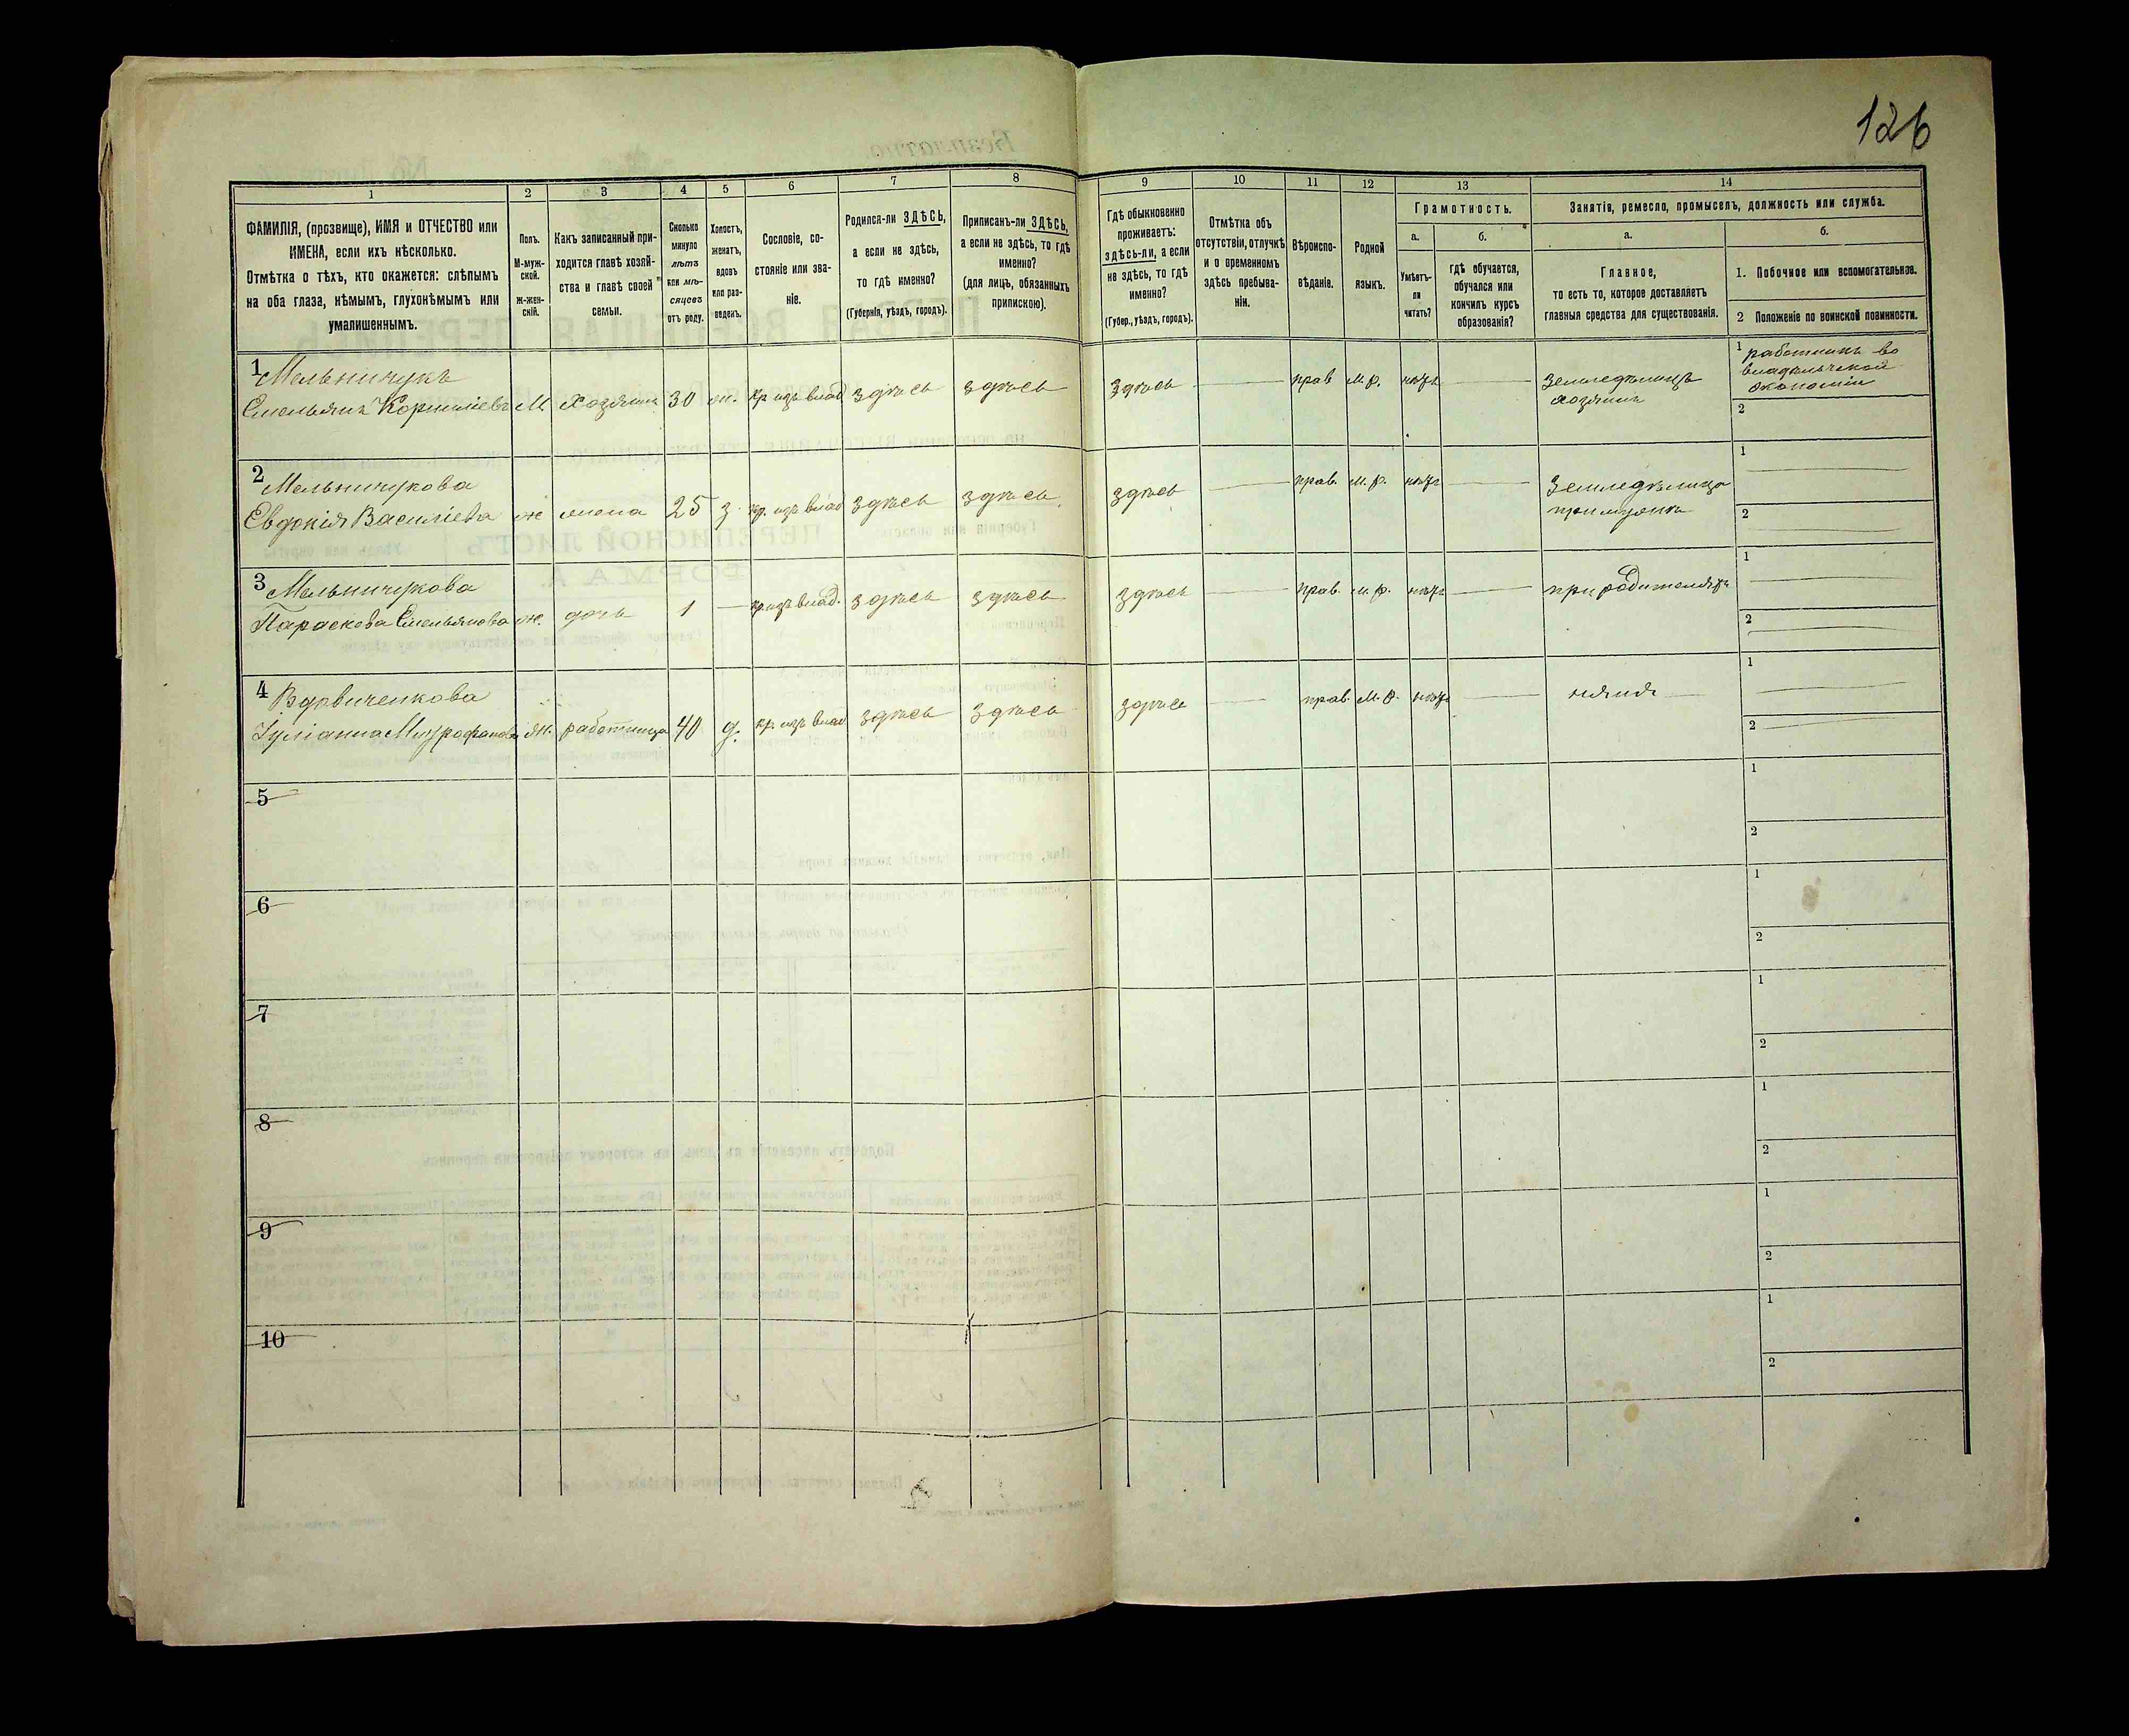 126
1
2
3
4
5
6
7
8
9
10
11
12
13
14
ФАМИЛІЯ, (прозвище), ИМЯ и ОТЧЕСТВО или
ИМЕНА, если ихъ нѣсколько.
Отмѣтка о тѣхъ, кто окажется: слѣпымъ
на оба глаза, нѣмымъ, глухонѣмымъ или
умалишеннымъ.
Полъ.
М-муж-
ской.
ж-жен-
скій.
Какъ записанный при-
ходится главѣ хозяй-
ства и главѣ своей
семьи.
Сколько
минуло
лѣтъ
или мѣ-
сяцевъ
отъ роду.
Холостъ,
женатъ,
вдовъ
или раз-
веденъ.
Сословіе, со-
стояніе или зва-
ніе.
Родился-ли ЗДѢСЬ,
а если не здѣсь,
то гдѣ именно?
(Губернія, уѣздъ, городъ).
Приписанъ-ли ЗДѢСЬ,
а если не здѣсь, то гдѣ
именно?
(для лицъ, обязанныхъ
припискою).
Гдѣ обыкновенно
проживаетъ:
здѣсь-ли, а если
не здѣсь, то гдѣ
именно?
(Губер., уѣздъ, городъ).
Отмѣтка объ
отсутствіи, отлучкѣ
и о временномъ
здѣсь пребыва-
ніи.
Вѣроиспо-
вѣданіе.
Родной
языкъ.
Грамотность.
а.
Умѣетъ-
ли
читать?
б.
гдѣ обучается,
обучался или
кончилъ курсъ
образованія?
Занятія, ремесло, промыселъ, должность или служба.
а.
Главное,
то есть то, которое доставляетъ
главныя средства для существованія.
б.
1. Побочное или вспомогательное.
2 Положеніе по воинской повинности.
1 Мельничукъ
Емельянъ Корниліевъ М. хозяинъ 30 ж. кр. изъ влад здѣсь здѣсь здѣсь прав М.р. нѣтъ
Земледѣлецъ
хозяинъ
1 работникъ во
владѣльческой
экономіи
2
2 Мельничукова
Евдокія Василіева ж жена 25 з. кр. изъ влад здѣсь здѣсь здѣсь прав. м. р. нѣтъ
Земледѣлица
при мужѣ
1
2
3 Мельничукова
Параскева Емельянова ж. дочь 1 кр. изъ влад. здѣсь здѣсь здѣсь прав. м. р. нѣтъ при родителяхъ
1
2
4 Вдовиченкова
Іуліанна Митрофанова ж. работница 40 д. кр. изъ влад здѣсь здѣсь здѣсь прав. М. р. нѣтъ няня
1
2
5
1
2
6
1
2
7
1
2
8
1
2
9
1
2
10
1
2